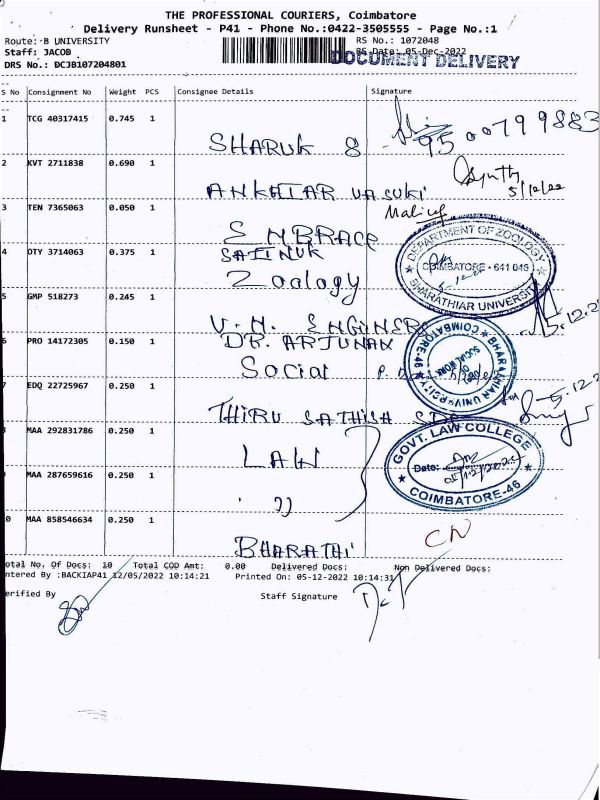 THE PROFESSIONAL COURIERS, Coimbatore
Delivery Runsheet - P41 - Phone No.:0422-3505555 - Page No.:1
Route: B UNIVERSITY
RS No.: 1072048
Staff: JACOB
RS Date: 05-Dec-2022
DOCUMENT DELIVERY
DRS No.: DCJB107204801
S No Consignment No Weight PCS Consignee Details Signature
1 TCG 40317415 0.745 1
SHARUK 8
9500799883
2 KVT 2711838 0.690 1
5/12/22
VASUKI
3 TEN 7365063 0.050 1
EMBRACE
4 OTY 3714063 0.375 1
Zoology
DEPARTMENT OF ZOOLOGY
COIMBATORE - 641 046
BHARATHIAR UNIVERSITY
5 GMP 518273 0.245 1
V.N. ENGINERS
6 PRO 14172305 0.150 1
DR. ARJUNAN
Social
SOCIAL WORK
BHARATHIAR UNIVERSITY
COIMBATORE-46
7 EDQ 22725967 0.250 1
THIRU SATHISH
8 MAA 292831786 0.250 1
LAW
GOVT. LAW COLLEGE
Date:
COIMBATORE-46
MAA 287659616 0.250 1
"
0 MAA 858546634 0.250 1
BHARATHI
CN
otal No. Of Docs: 10 Total COD Amt: 0.00 Delivered Docs: Non Delivered Docs:
ntered By :BACKIAP41 12/05/2022 10:14:21 Printed On: 05-12-2022 10:14:31
erified By
Staff Signature